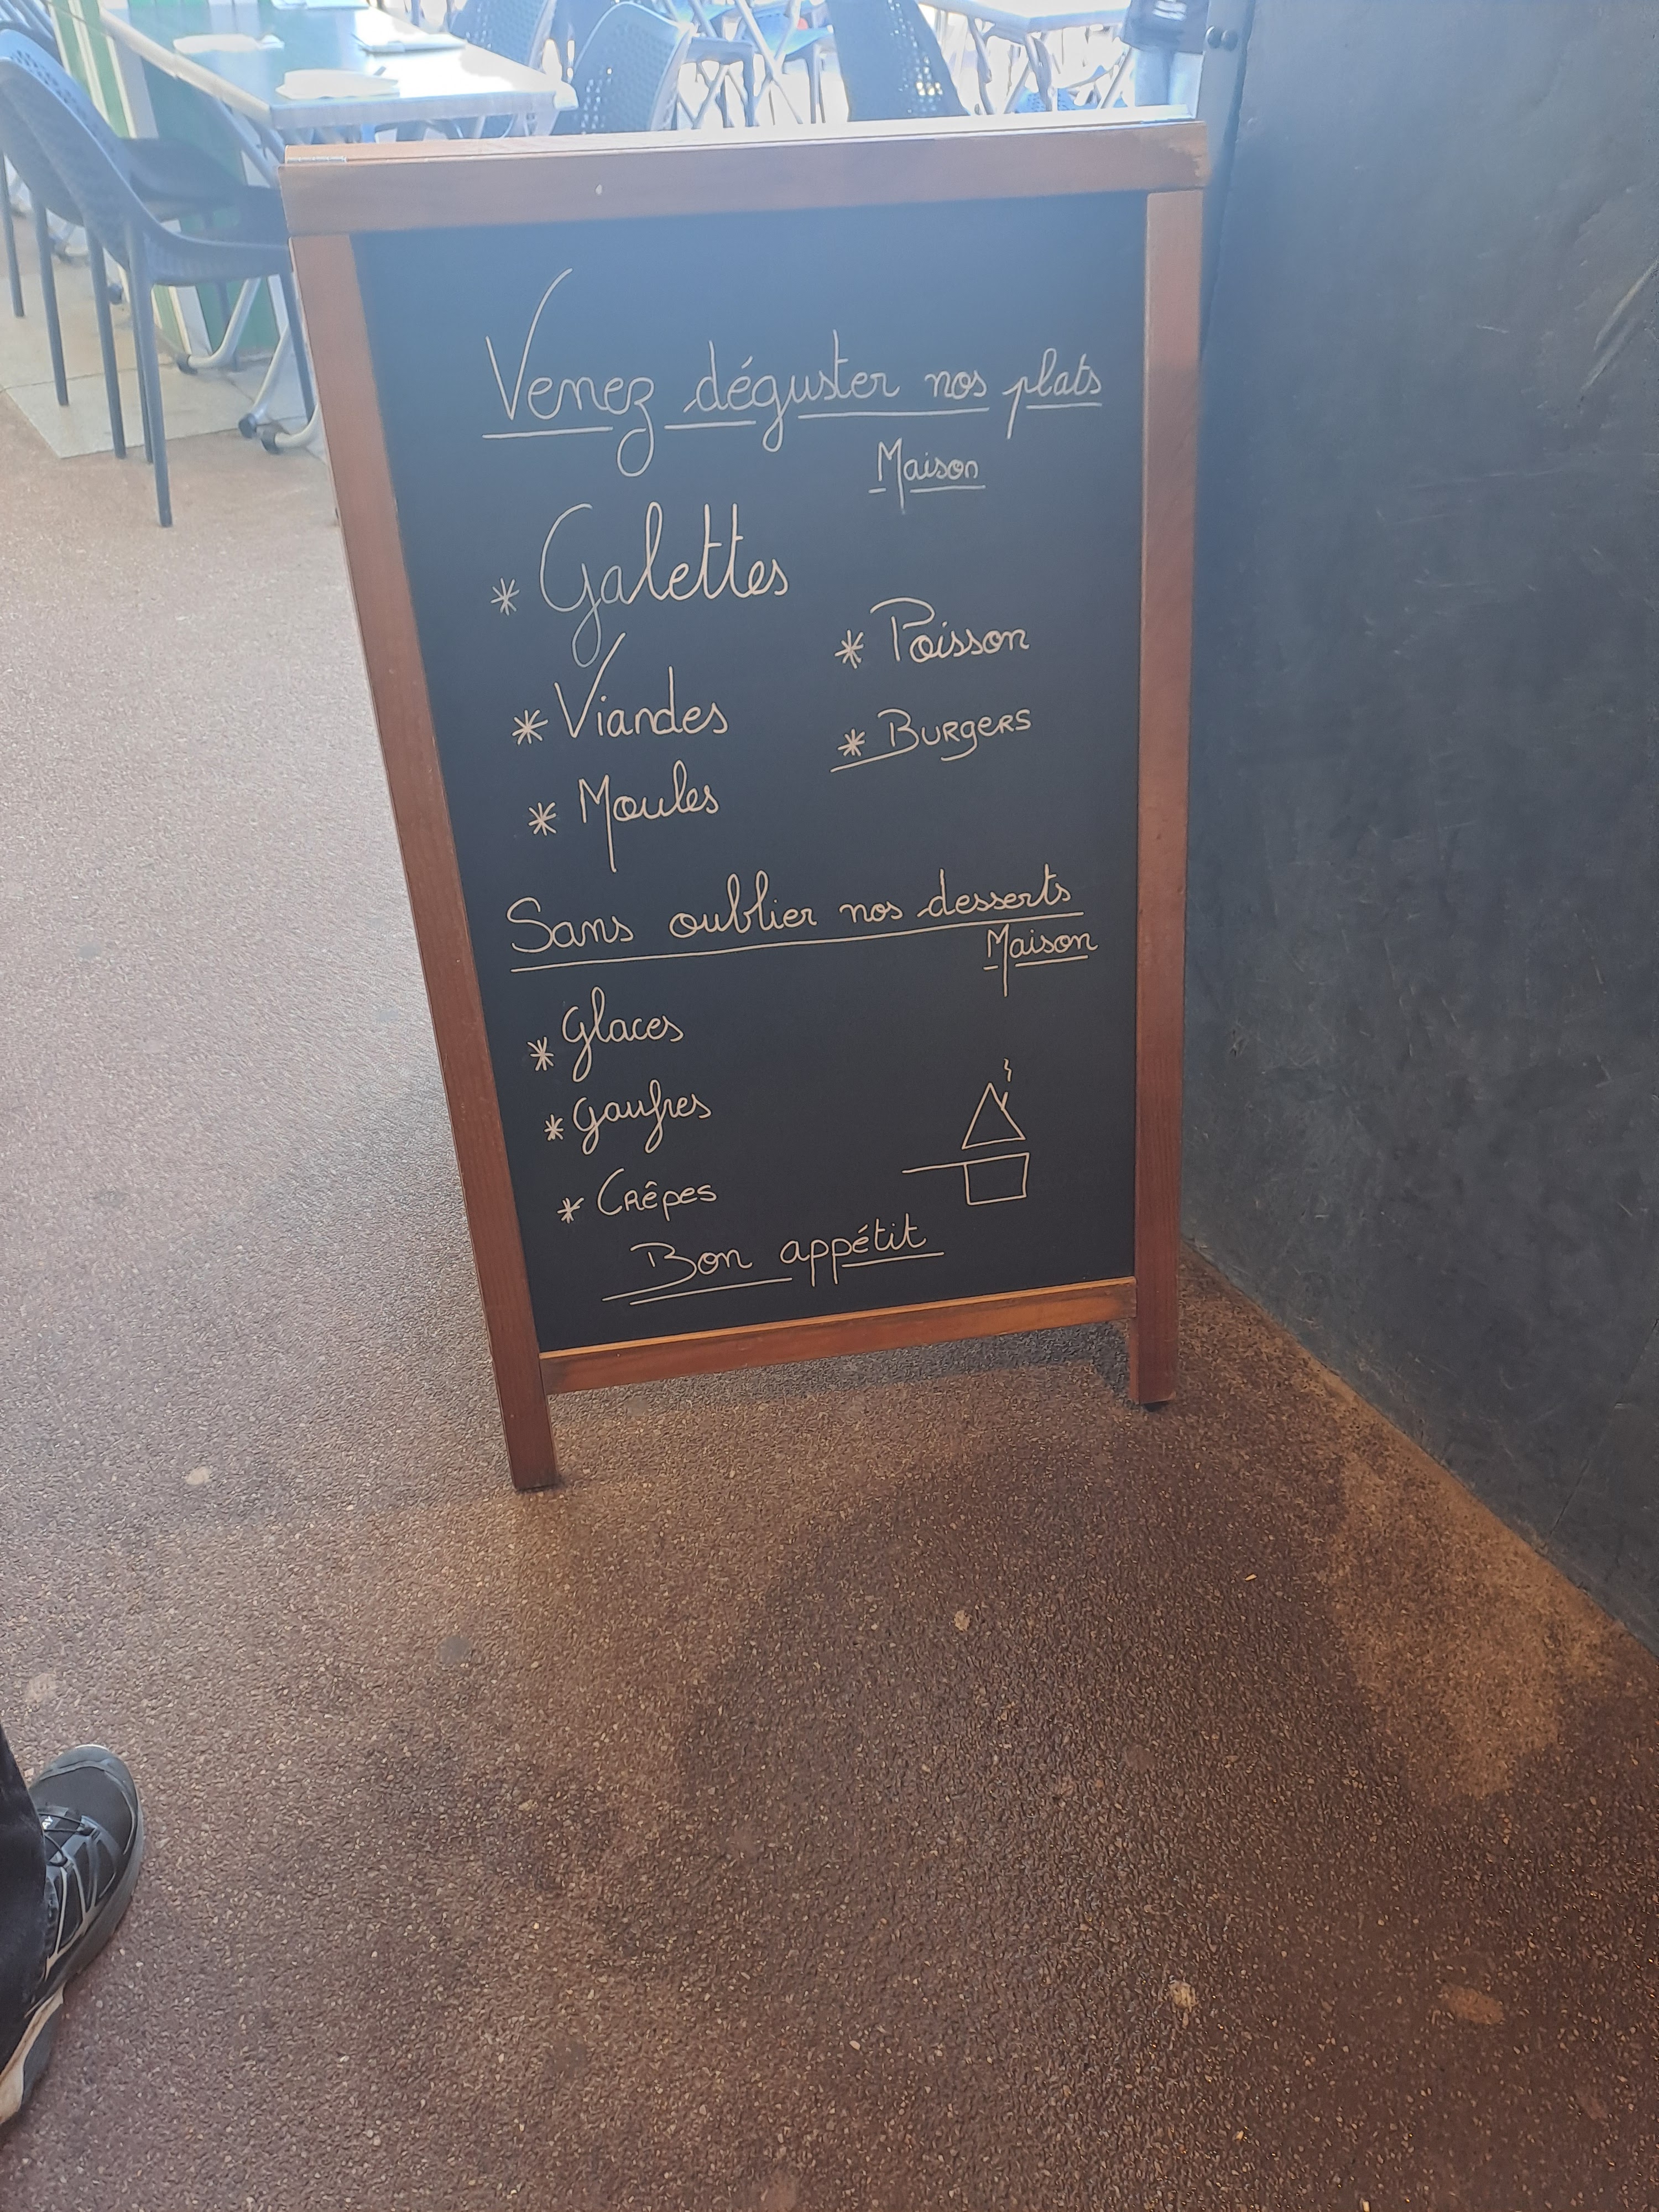 Venez déguster nos plats
Maison
* Galettes
* Poisson
* Viandes
* Burgers
* Moules
Sans oublier nos desserts
Maison
* Glaces
* Gaufres
* Crêpes
Bon appétit